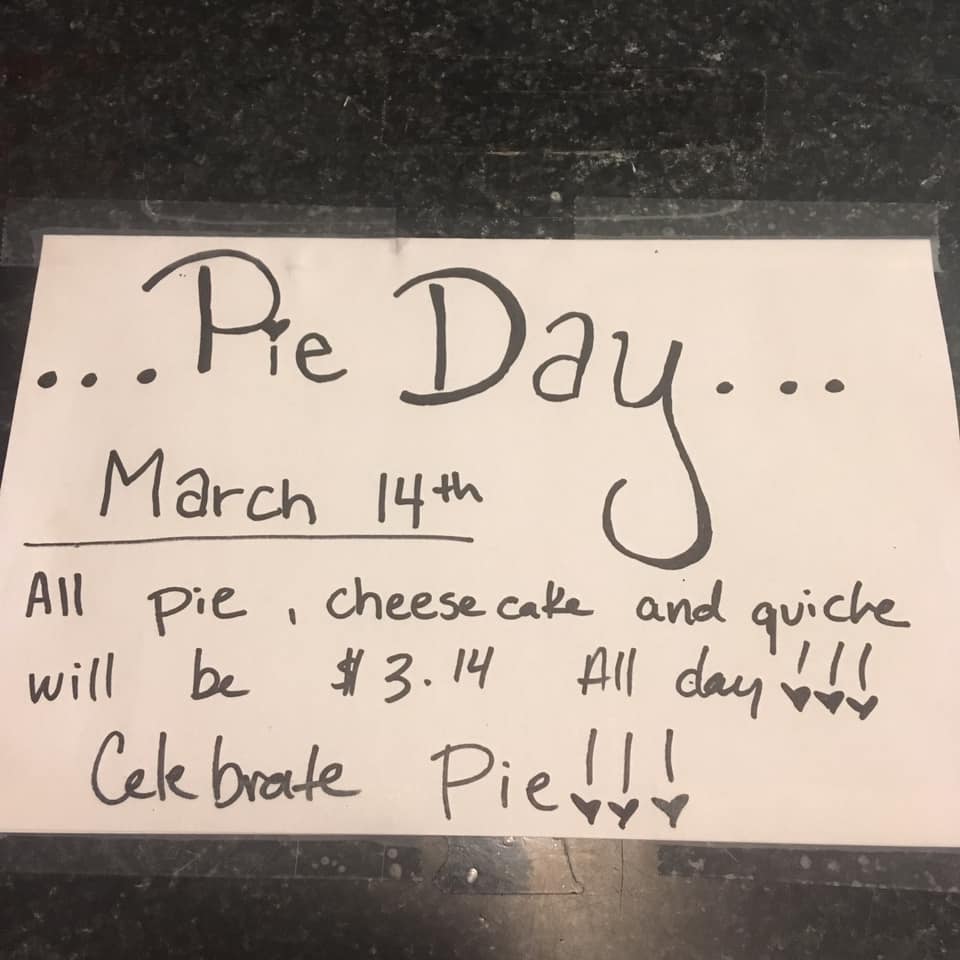 ...Pie Day...
March 14th
All pie, cheesecake and quiche
will be $3.14 All day!!!
Celebrate Pie!!!